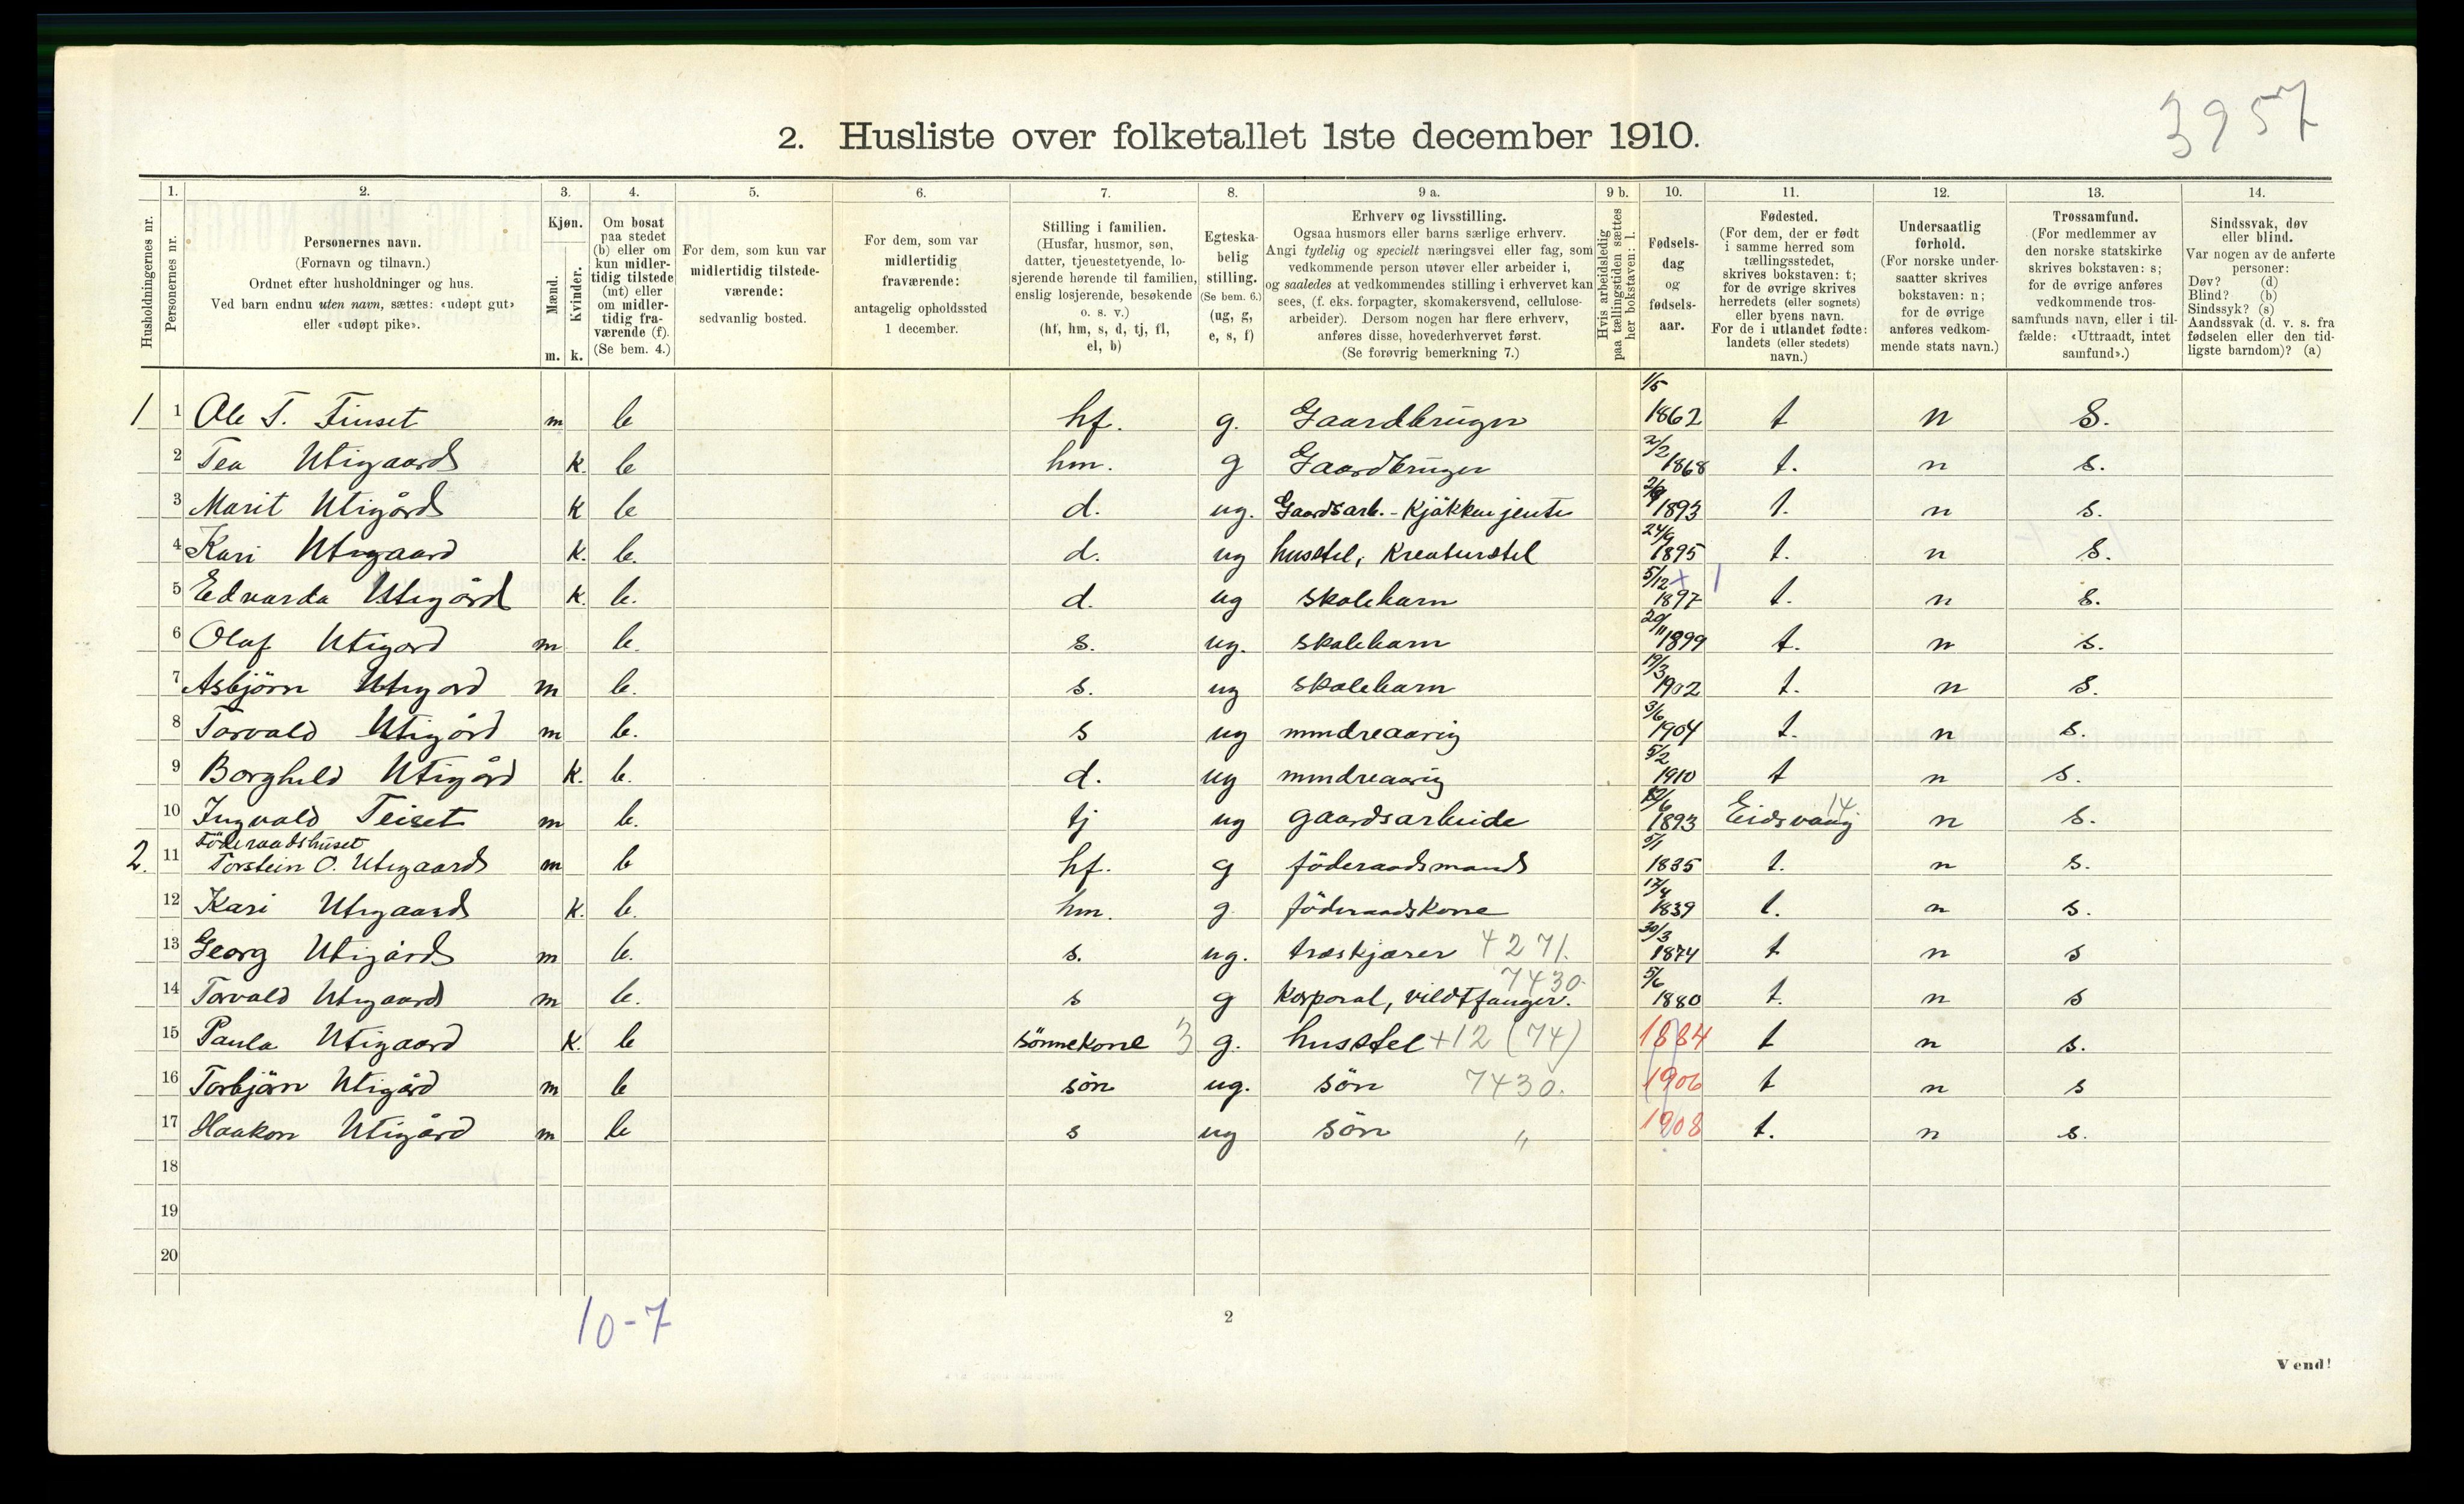 3957
2. Husliste over folketallet 1ste december 1910.
Husholdningernes nr.
1. Personernes nr.
2. Personernes navn.
(Fornavn og tilnavn.)
Ordnet efter husholdninger og hus.
Ved barn endnu uten navn, sættes: «udøpt gut»
eller «udøpt pike».
3. Kjøn.
Mænd. Kvinder.
m. k.
4. Om bosat
paa stedet
(b) eller om
kun midler-
tidig tilstede
(mt) eller
om midler-
tidig fra-
værende (f).
(Se bem. 4.)
5. For dem, som kun var
midlertidig tilstede-
værende:
sedvanlig bosted.
6. For dem, som var
midlertidig
fraværende:
antagelig opholdssted
1 december.
7. Stilling i familien.
(Husfar, husmor, søn,
datter, tjenestetyende, lo-
sjerende hørende til familien,
enslig losjerende, besøkende
o. s. v.)
(hf, hm, s, d, tj, fl,
el, b)
8. Egteska-
belig
stilling.
(Se bem. 6.)
(ug, g,
e, s, f)
9 a. Erhverv og livsstilling.
Ogsaa husmors eller barns særlige erhverv.
Angi tydelig og specielt næringsvei eller fag, som
vedkommende person utøver eller arbeider i,
og saaledes at vedkommendes stilling i erhvervet kan
sees, (f. eks. forpagter, skomakersvend, cellulose-
arbeider). Dersom nogen har flere erhverv,
anføres disse, hovederhvervet først.
(Se forøvrig bemerkning 7.)
9 b. Hvis arbeidsledig
paa tællingstiden sættes
her bokstaven: l.
10. Fødsels-
dag
og
fødsels-
aar.
11. Fødested.
(For dem, der er født
i samme herred som
tællingsstedet,
skrives bokstaven: t;
for de øvrige skrives
herredets (eller sognets)
eller byens navn.
For de i utlandet fødte:
landets (eller stedets)
navn.)
12. Undersaatlig
forhold.
(For norske under-
saatter skrives
bokstaven: n;
for de øvrige
anføres vedkom-
mende stats navn.)
13. Trossamfund.
(For medlemmer av
den norske statskirke
skrives bokstaven: s;
for de øvrige anføres
vedkommende tros-
samfunds navn, eller i til-
fælde: «Uttraadt, intet
samfund».)
14. Sindssvak, døv
eller blind.
Var nogen av de anførte
personer:
Døv? (d)
Blind? (b)
Sindssyk? (s)
Aandssvak (d. v. s. fra
fødselen eller den tid-
ligste barndom)? (a)
1 1 Ole T. Finset m b hf. g. Gaardbruger 1/5 1862 t n s.
2 Tea Utigaard k. b hm. g Gaardbruger 2/2 1868 t. n s.
3 Marit Utigård k b d. ug. Gaardsarb. - Kjøkkenjente 1893 t. n s.
4 Kari Utigaard k. b. d. ug husstel, Kreaturstel 24/9 1895 t. n s.
5 Edvarda Utigård k. b. d. ug skolebarn 5/12 1897 t. n s.
6 Olaf Utigård m b. s. ug. skolebarn 20/11 1899 t. n s.
7 Asbjörn Utigård m b. s. ug skolebarn 19/3 1902 t. n s.
8 Torvald Utigård m b. s ug mindreaarig 3/6 1904 t. n s.
9 Borghild Utigård k. b. d. ug mindreaarig 5/2 1910 t n s.
10 Ingvald Teiset m b. tj ug gaardsarbeide 1893 Eidsvaag 14 n s.
Föderaadshuset
2. 11 Torstein O. Utigaard m b hf. g föderaadsmand 5/1 1835 t. n s.
12 Kari Utigaard k. b. hm. g. föderaadskone 17/4 1839 t. n s.
13 Georg Utigård m b. s. ug. træskjærer 4271. 30/3 1874 t n s
14 Torvald Utigaard m b. s g korporal, vildtfanger. 7430. 5/6 1880 t. n s
15 Paula Utigaard k. b sönnekone 3 g. husstel +12 (74) 1884 t n s.
16 Torbjörn Utigård m b sön ug. sön 7430. 1906 t n s
17 Haakon Utigård m b s ug sön " 1908 t. n s.
18
19
20
10-7
2
Vend!